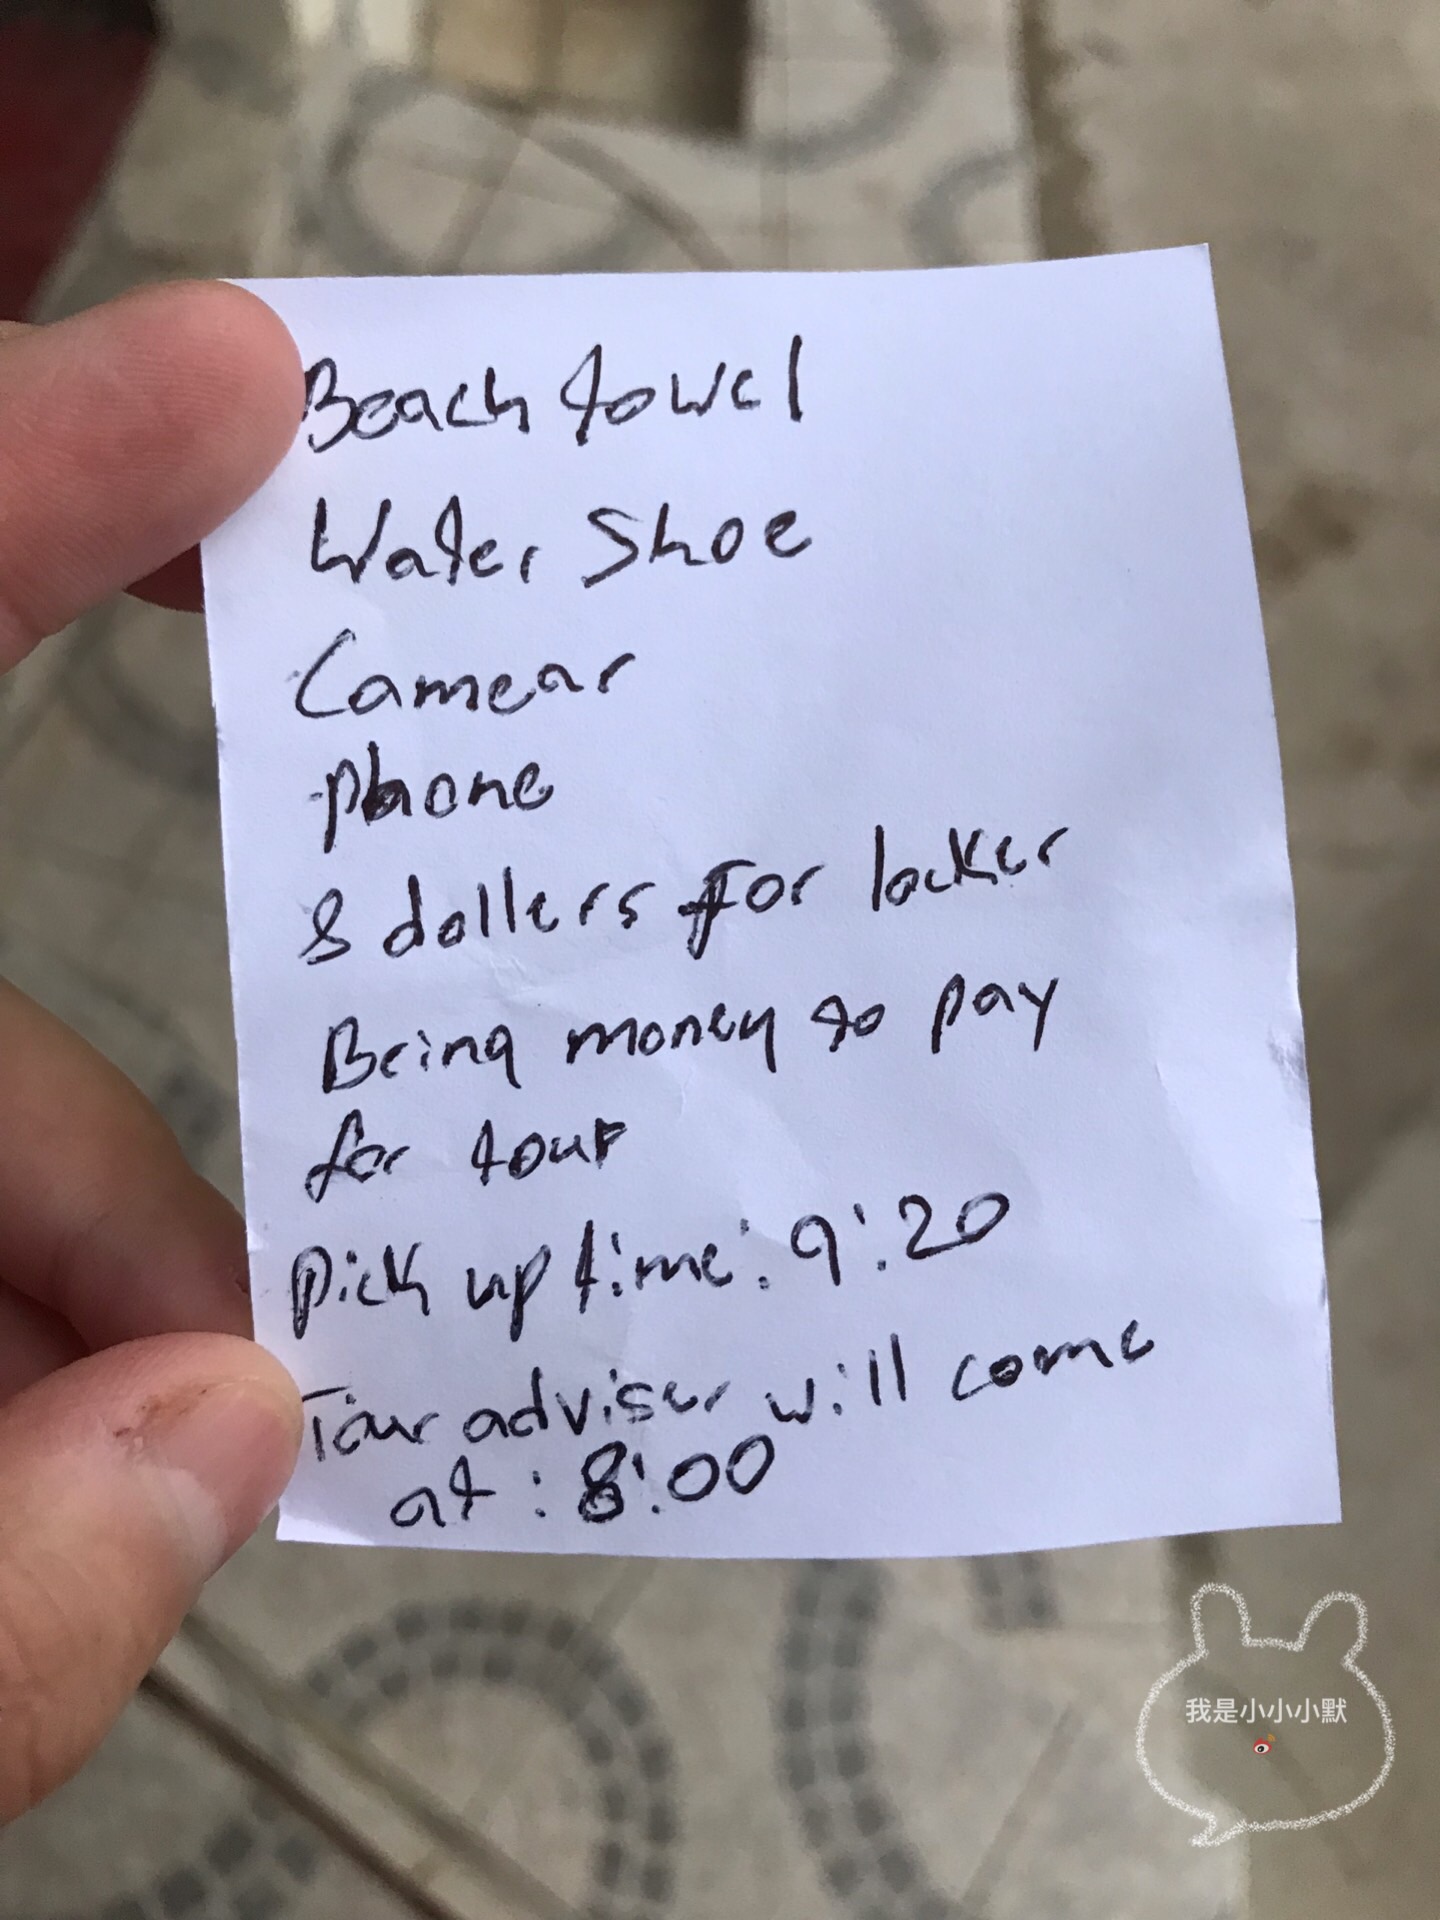 Beach towel
Water Shoe
Camear
phone
8 dollers for locker
Bring money to pay
for tour
Pick up time: 9:20
Tour adviser will come
at : 8:00
我是小小小默